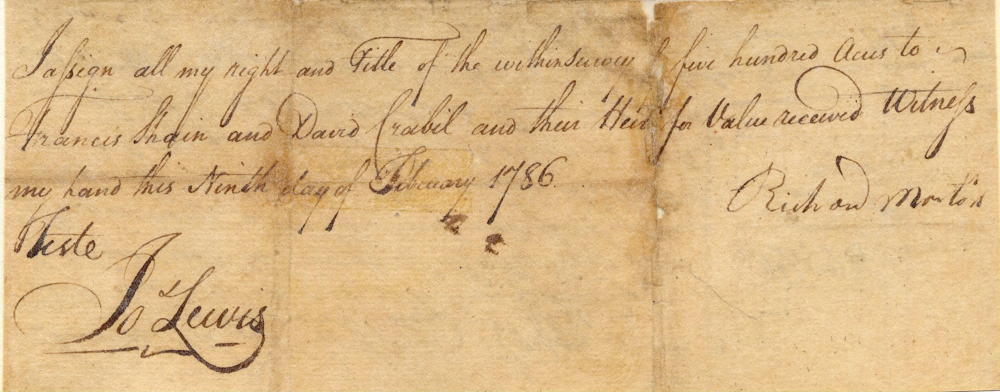 I assign all my right and Title of the within Survey of five hundred Acres to
Francis Shain and David Crabil and their Heirs for Value received Witness
my hand this Ninth day of February 1786
Richard Morton
Teste
Jo Lewis